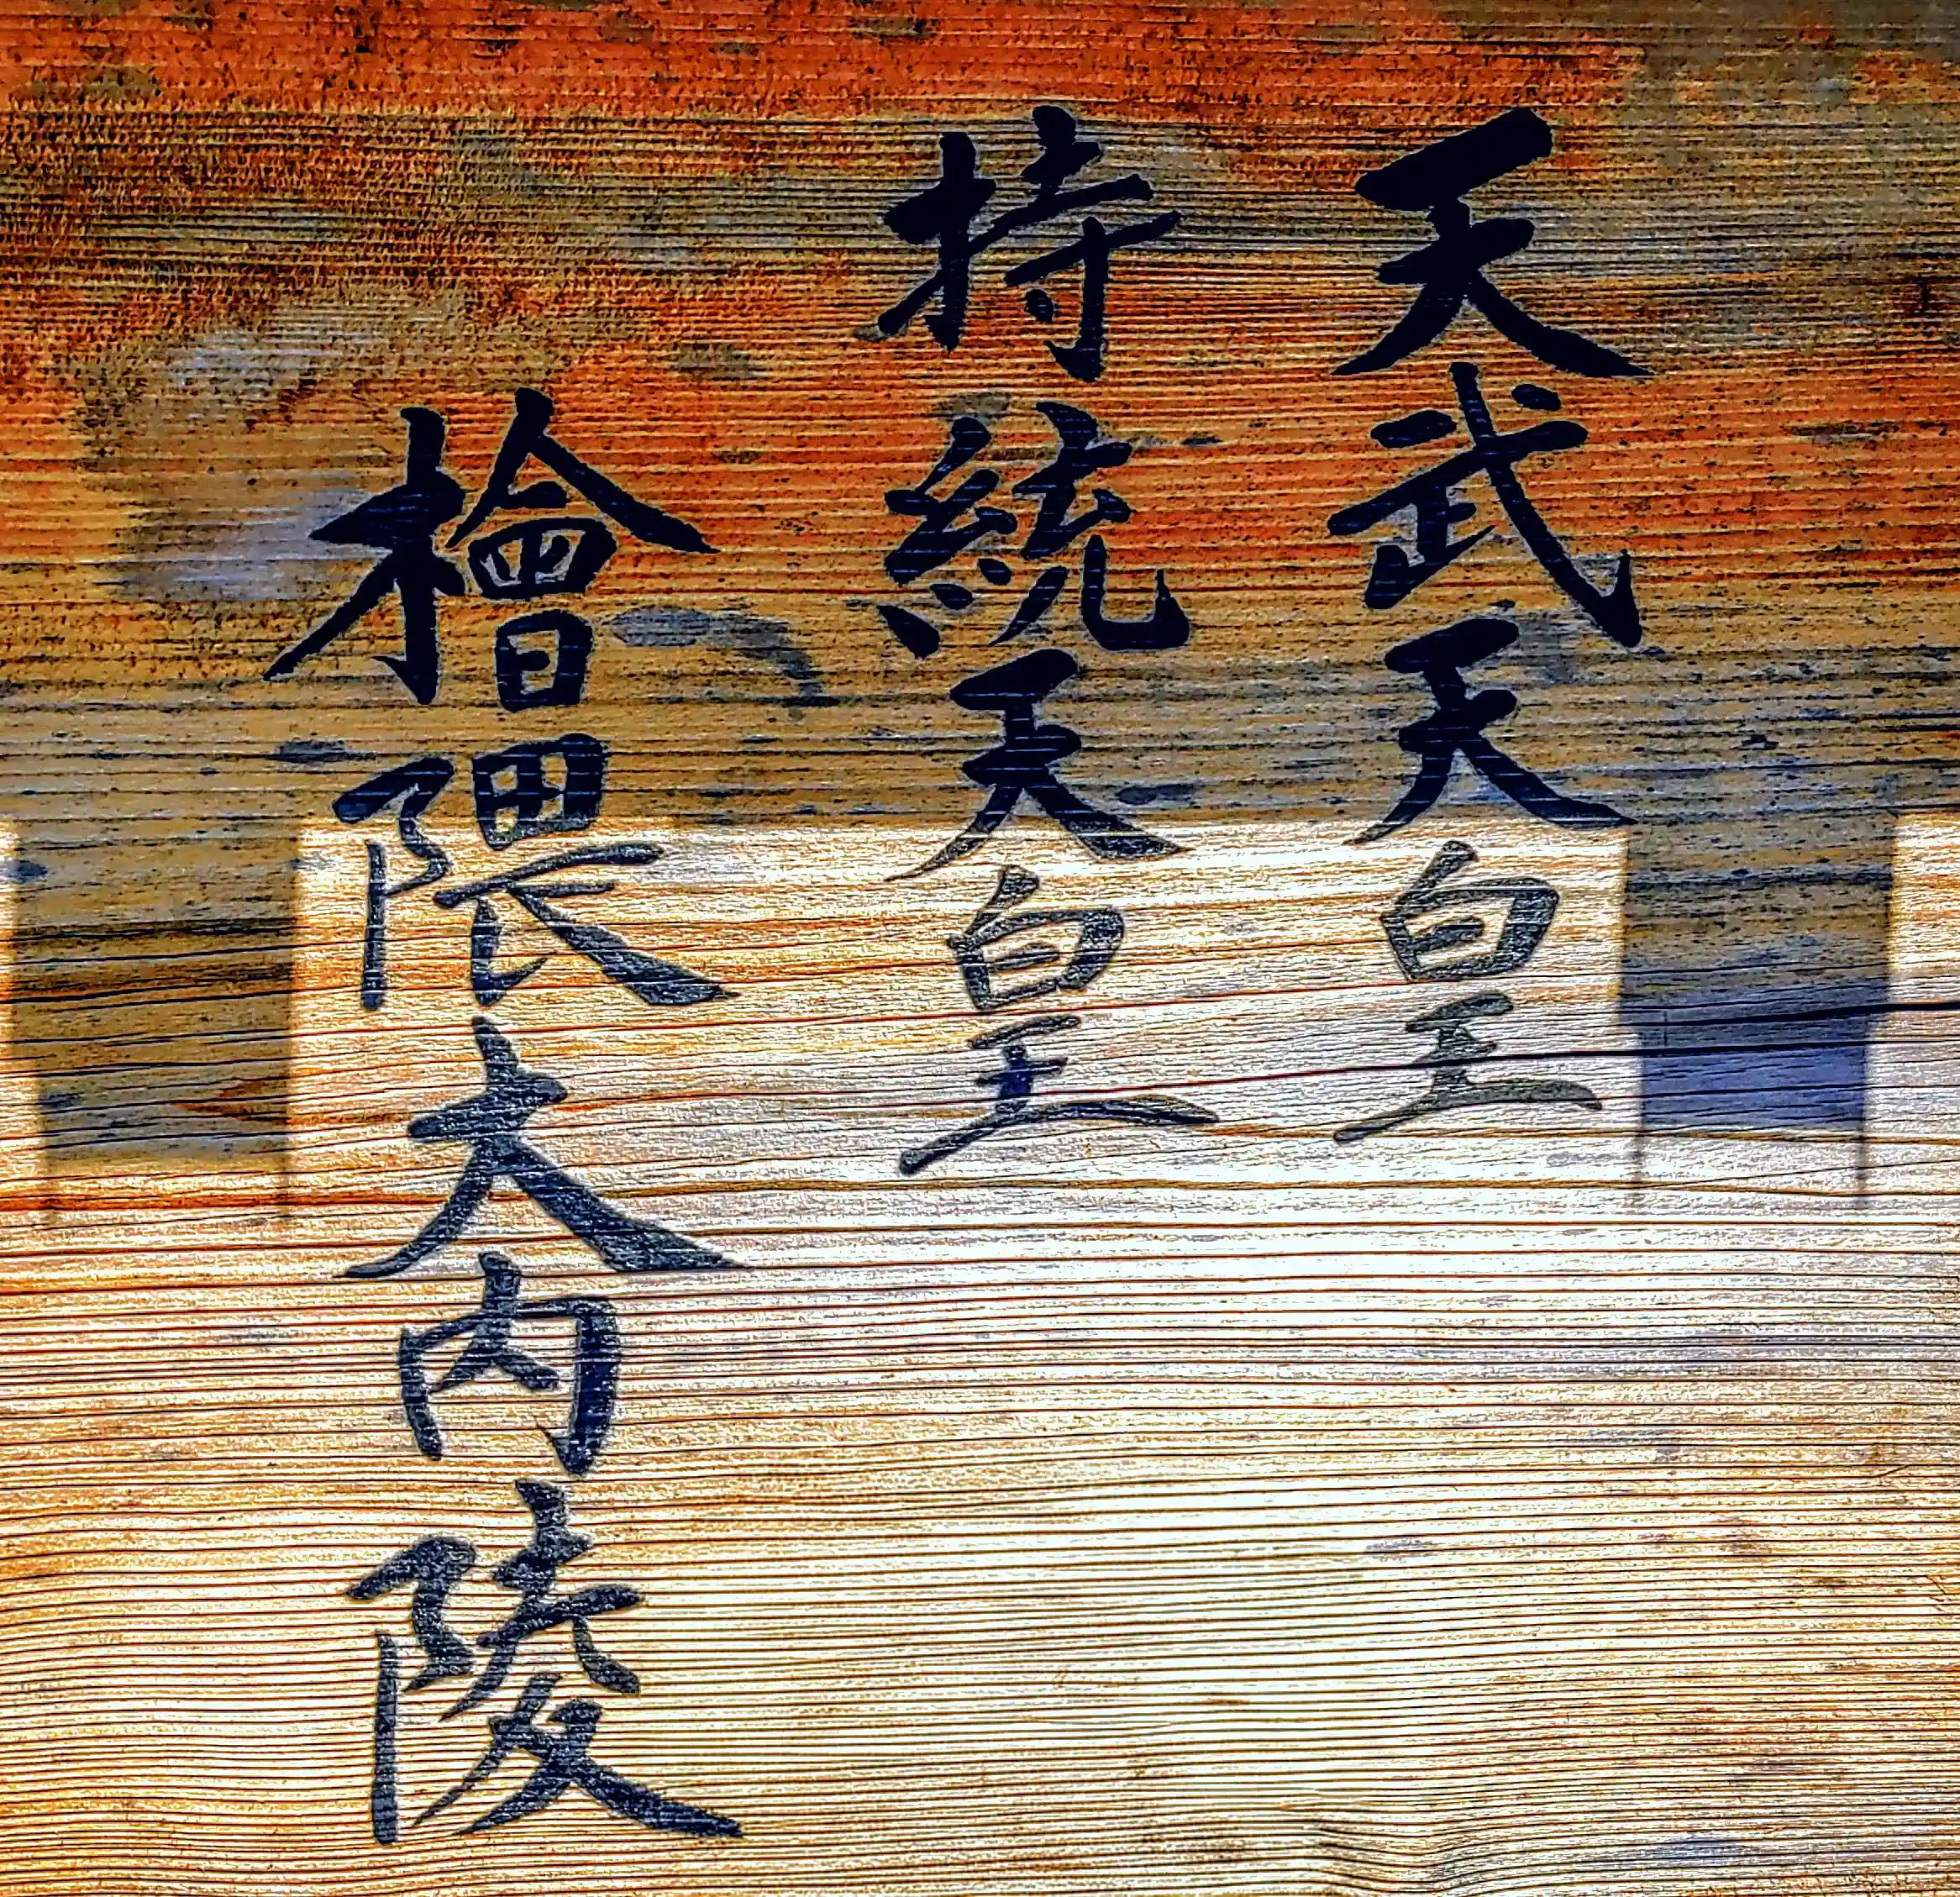 天武天皇
持統天皇
檜隈大内陵